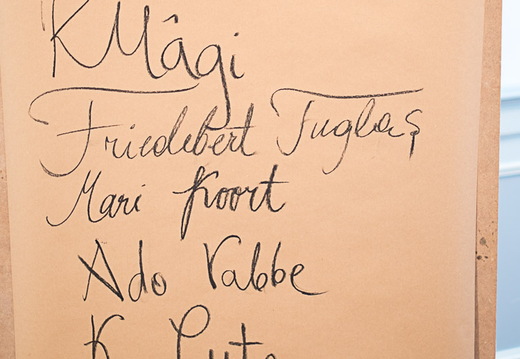 K Mägi
Friedebert Tuglas
Mari Koort
Ado Vabbe
K